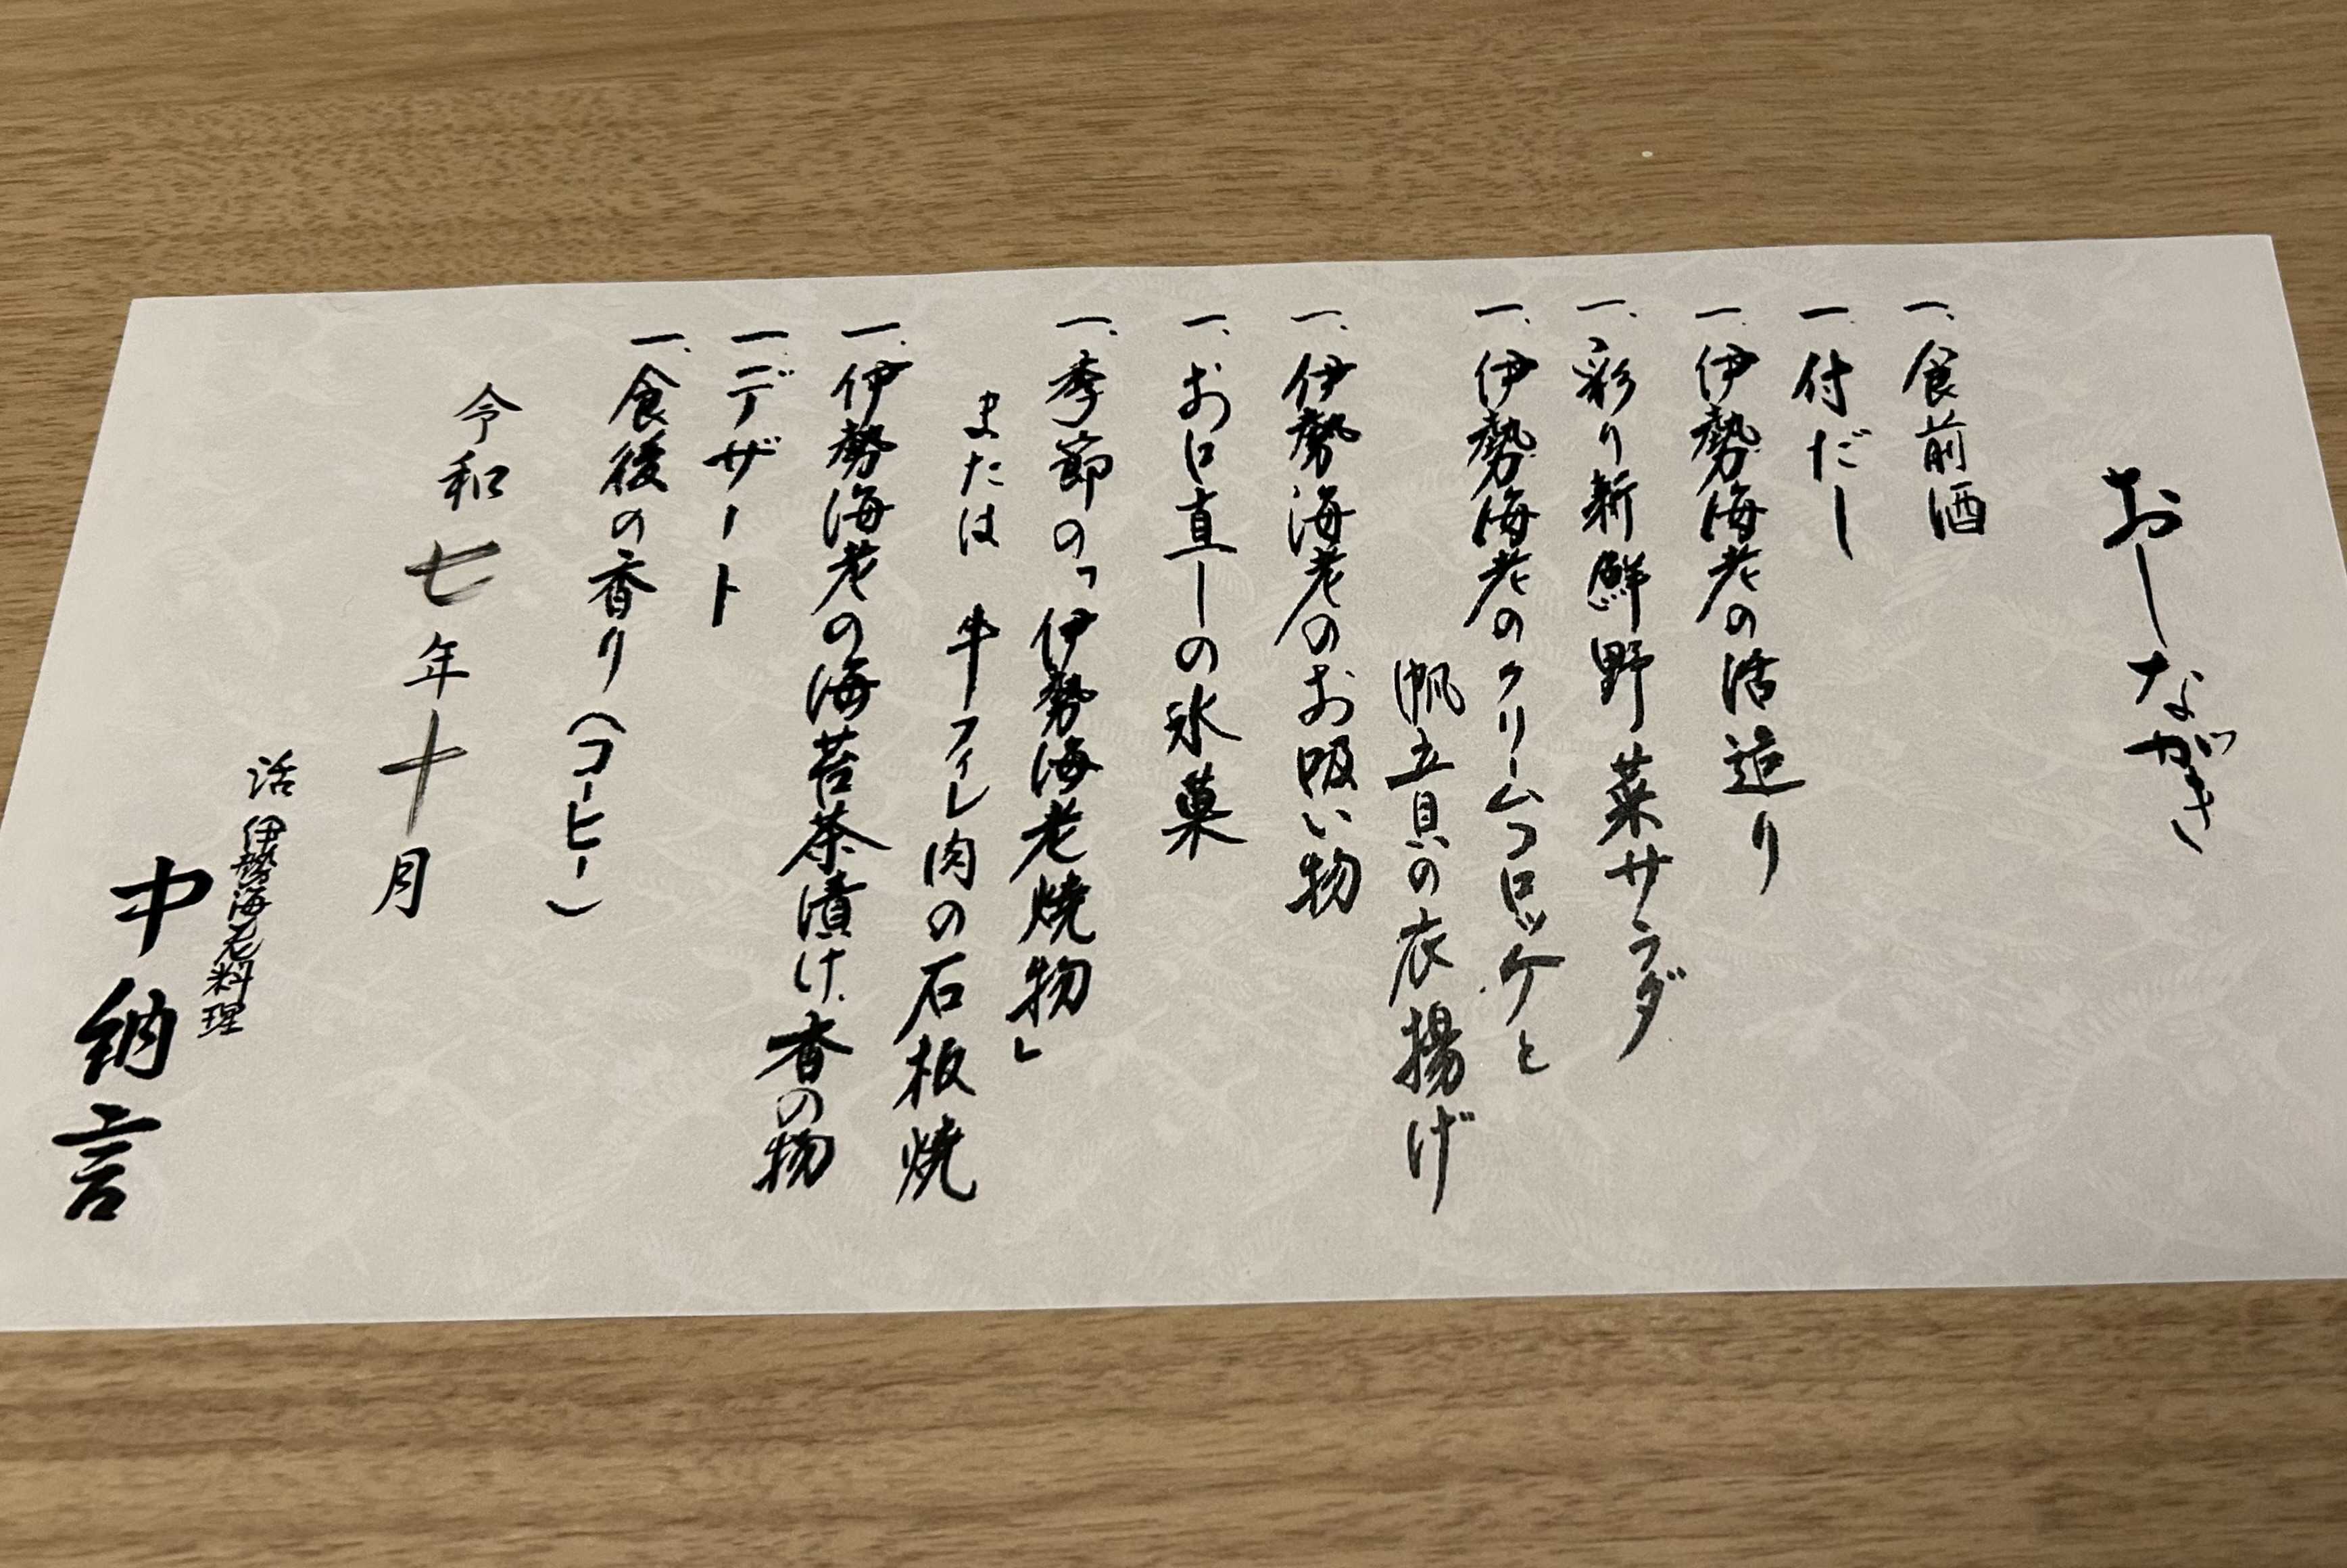 おしながき
一、食前酒
一、付だし
一、伊勢海老の活造り
一、彩り新鮮野菜サラダ
一、伊勢海老のクリームコロッケと
帆立貝の衣揚げ
一、伊勢海老のお吸い物
一、お口直しの氷菓
一、季節の「伊勢海老焼物」
または 牛フィレ肉の石板焼
一、伊勢海老の海苔茶漬け、香の物
一、デザート
一、食後の香り（コーヒー）
令和七年十月
活伊勢海老料理
中納言